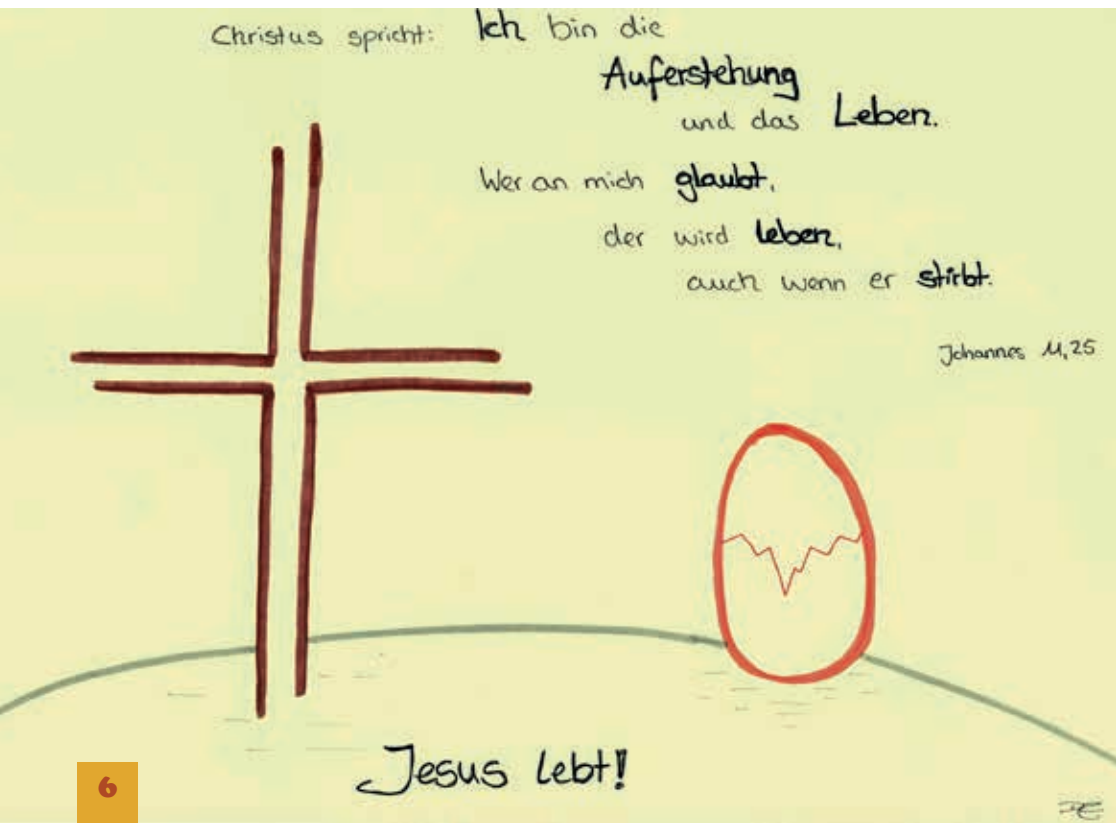 Christus spricht: Ich bin die
Auferstehung
und das Leben.
Wer an mich glaubt,
der wird leben,
auch wenn er stirbt.
Johannes 11,25
Jesus lebt!
6